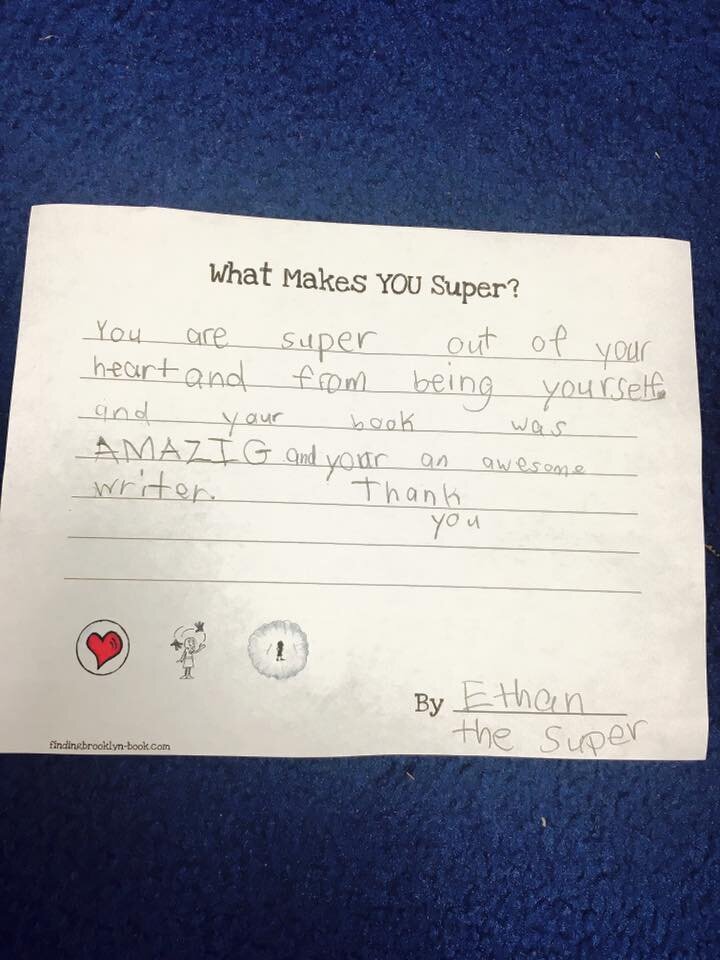 What Makes YOU Super?
You are super out of your
heart and from being yourself.
and your book was
AMAZIG and your an awesome
writer. Thank
you
By Ethan
the super
findingbrooklyn-book.com